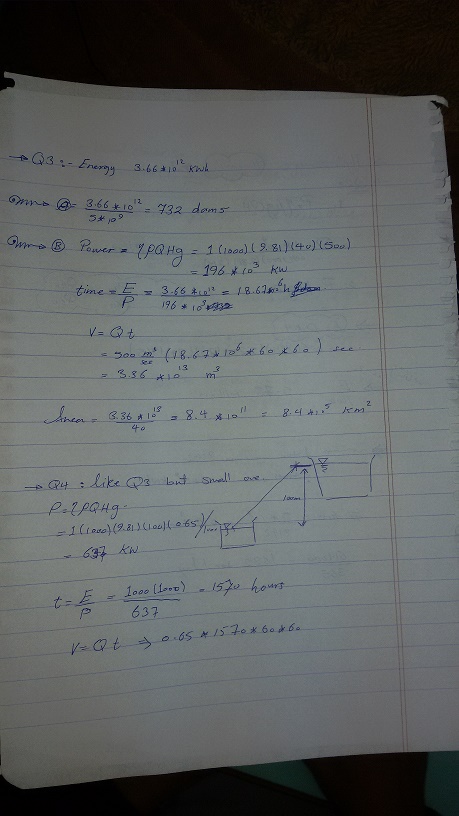 → Q3 :- Energy 3.66 * 10^12 kwh
→ Ⓐ = 3.66 * 10^12 / 5 * 10^9 = 732 dams
→ Ⓑ Power = ηρQHg = 1 (1000) (9.81) (40) (500)
= 196 * 10^3 kw
time = E/P = 3.66 * 10^12 / 196 * 10^3 = 18.67*10^6 h
V = Q t
= 500 m^3/sec (18.67 * 10^6 * 60 * 60) sec
= 3.36 * 10^13 m^3
= 3.36 * 10^13 / 40 = 8.4 * 10^11 = 8.4 * 10^5 Km^2
→ Q4 : like Q3 but small one.
P = ηρQHg
100m
= 1 (1000) (9.81) (100) (0.65) / 1000
= 637 KW
t = E/P = 1000 (1000) / 637 = 1570 hours
V = Q t ⇒ 0.65 * 1570 * 60 * 60